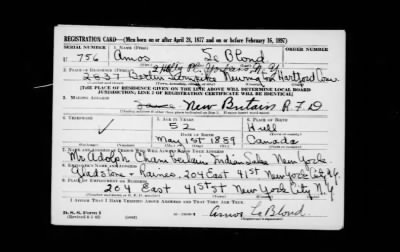 REGISTRATION CARD—(Men born on or after April 28, 1877 and on or before February 16, 1897)
SERIAL NUMBER 1. NAME (Print) ORDER NUMBER
U 756 Amos Le Blond
(First) (Middle) (Last)
2. PLACE OF RESIDENCE (Print)
2837 Berlin Turnpike Newington Hartford Conn.
[THE PLACE OF RESIDENCE GIVEN ON THE LINE ABOVE WILL DETERMINE LOCAL BOARD
JURISDICTION; LINE 2 OF REGISTRATION CERTIFICATE WILL BE IDENTICAL]
3. MAILING ADDRESS
Same New Britain R.F.D
4. TELEPHONE 5. AGE IN YEARS 6. PLACE OF BIRTH
52 Hull
DATE OF BIRTH
May 1st 1889 Canada
7. NAME AND ADDRESS OF PERSON WHO WILL ALWAYS KNOW YOUR ADDRESS
Mr Adolph Chamberlain Indian Lake New York
8. EMPLOYER'S NAME AND ADDRESS
Gladstone + Raines, 204 East 41st New York City N.Y.
9. PLACE OF EMPLOYMENT OR BUSINESS
204 East 41st st New York City N.Y.
I AFFIRM THAT I HAVE VERIFIED ABOVE ANSWERS AND THAT THEY ARE TRUE.
D. S. S. Form 1 Amos Le Blond